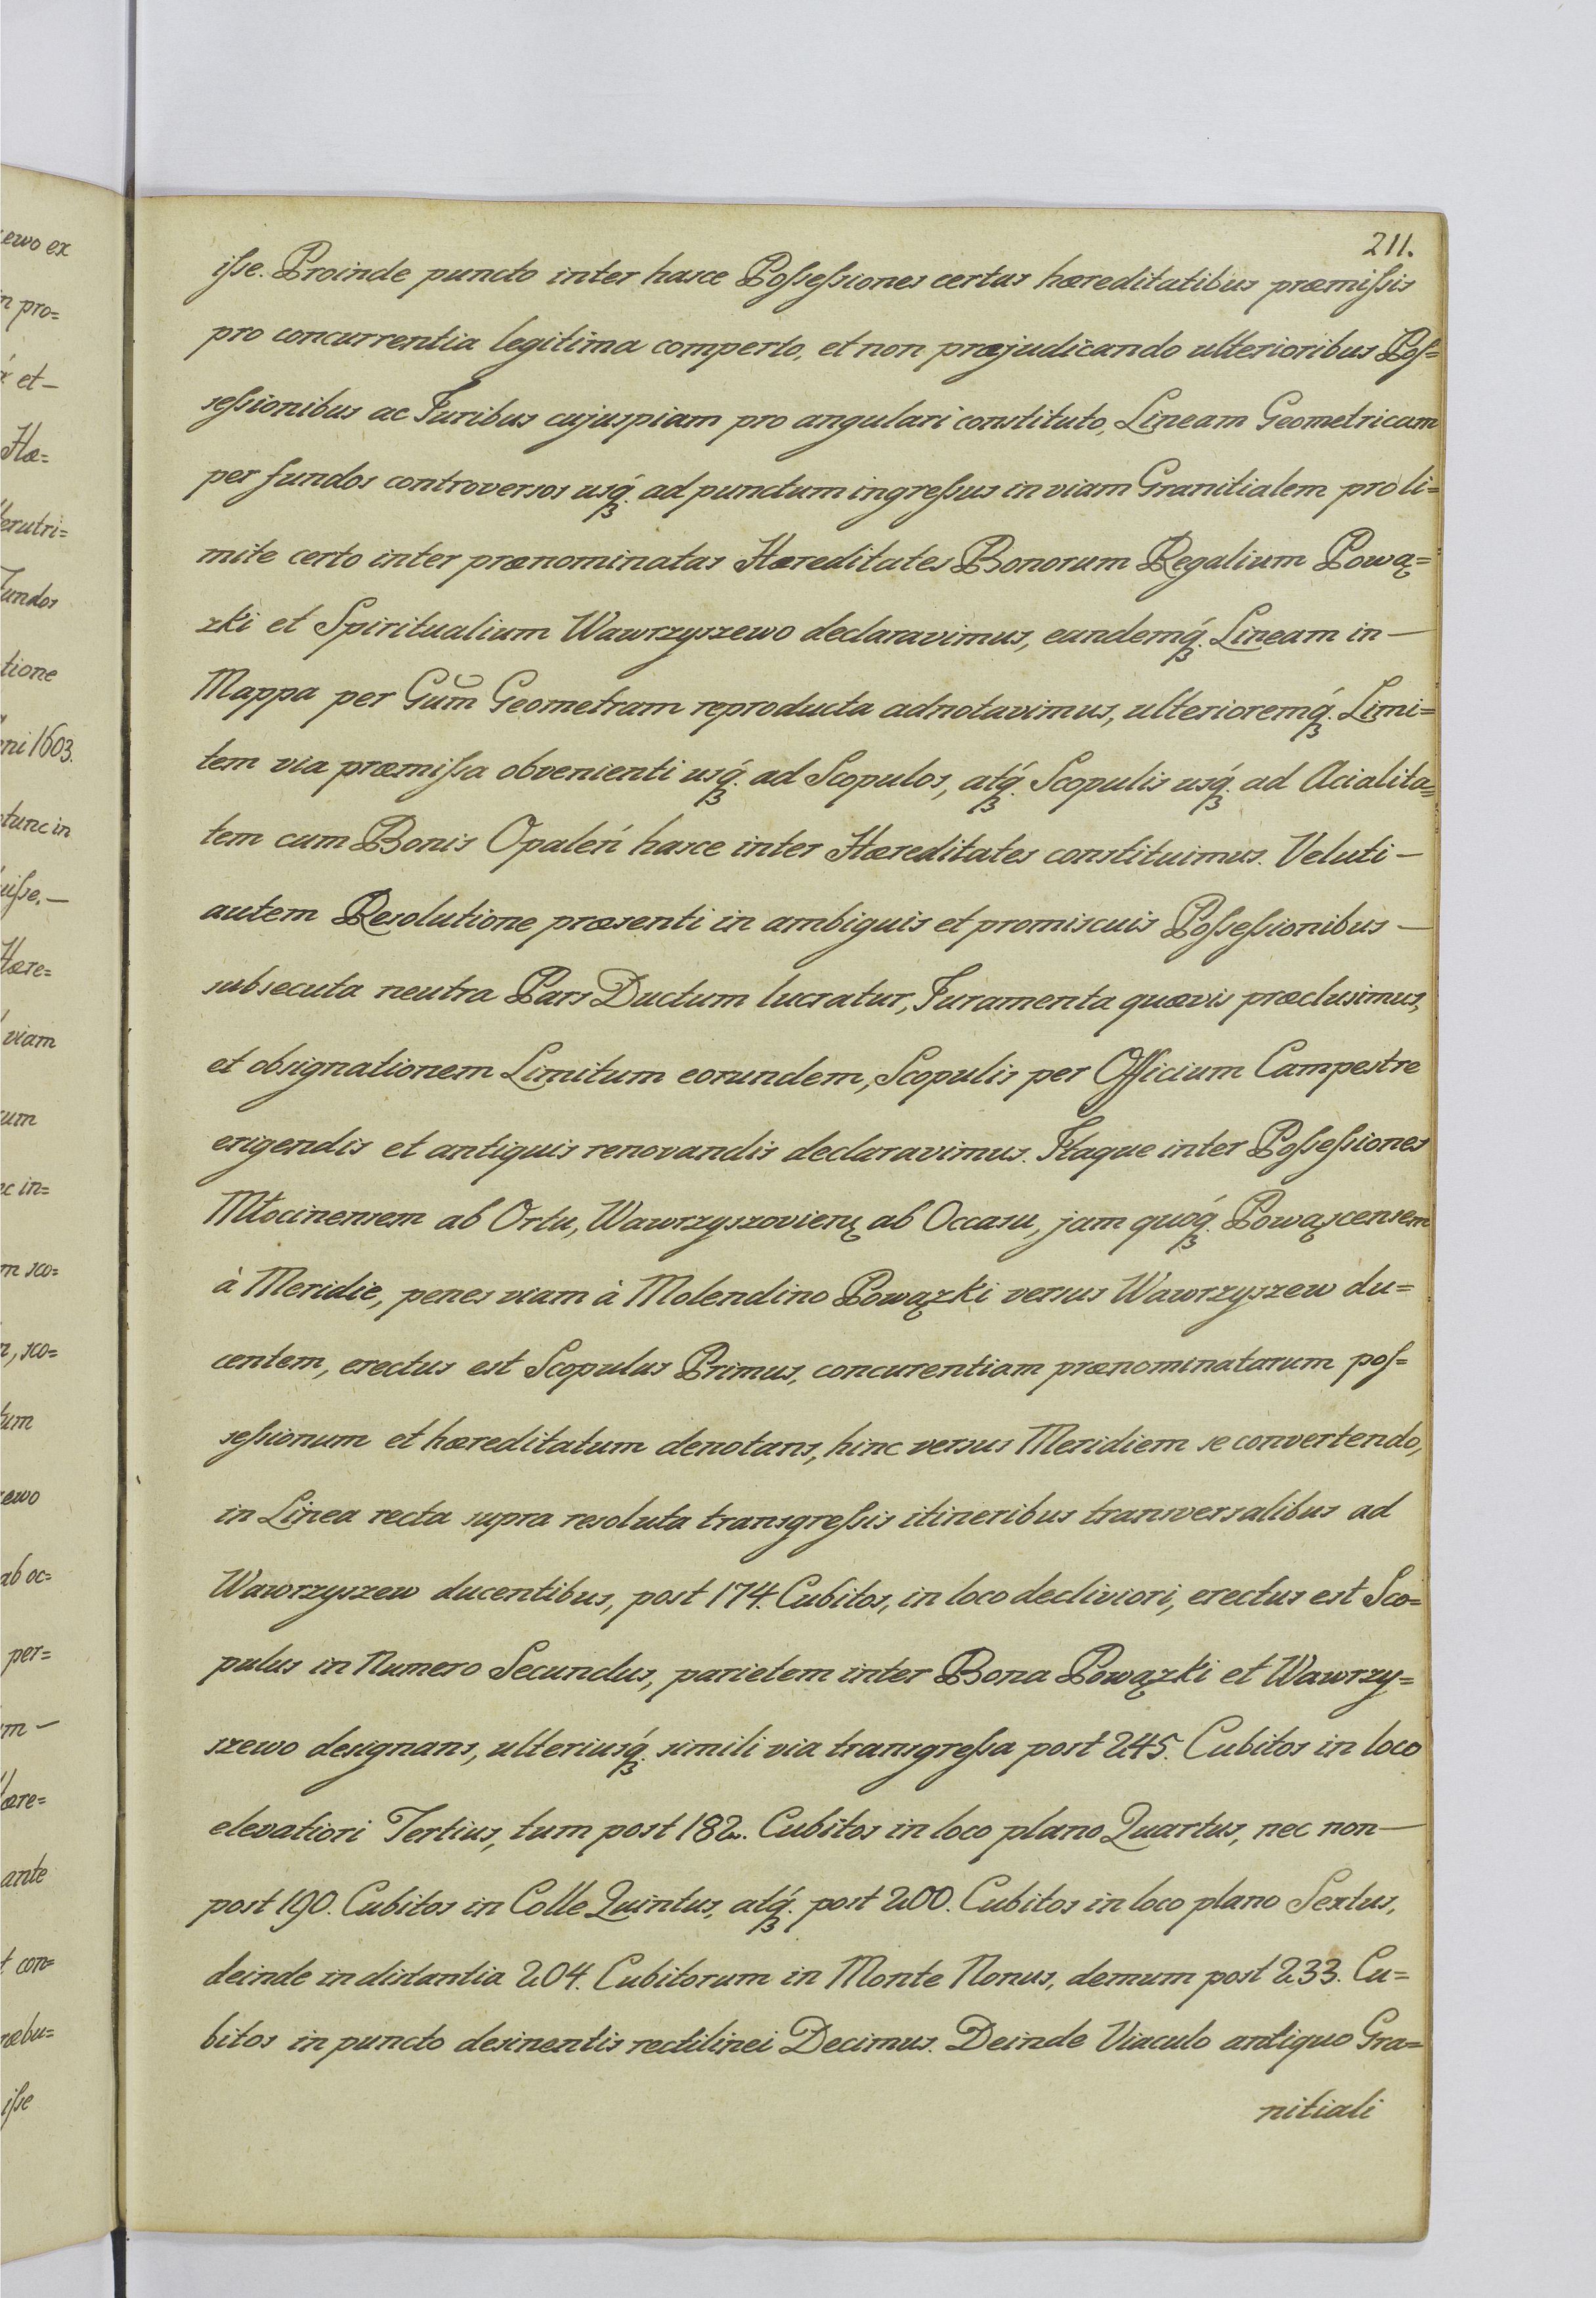 211.
iſse. Proinde puncto inter hasce Poſseſsiones certas hæreditatibus præmiſsis
pro concurrentia legitima comperto, et non præjudicando ulterioribus Poſ=
seſsionibus ac Juribus cujuspiam pro angulari constituto, Lineam Geometricam
per fundos controversos usq́ʒ. ad punctum ingreſsus in viam Granitialem pro li=
mite certo inter prænominatas Hæreditates Bonorum Regalium Pową=
zki et Spiritualium Wawrzyszewo declaravimus, eandemq́ʒ. Lineam in—
Mappa per Gūm Geometram reproducta adnotavimus, ulterioremq́ʒ. Limi=
tem via præmiſsa obvenienti usq́ʒ. ad Scopulos, atq́ʒ. Scopulis usq́ʒ. ad Acialita=
tem cum Bonis Opaleń hasce inter Hæreditates constituimus. Veluti—
autem Resolutione præsenti in ambiguis et promiscuis Poſseſsionibus—
subsecuta neutra Pars Ductum lucratur, Juramenta quævis præclusimus,
et obsignationem Limitum eorundem, Scopulis per Officium Campestre
erigendis et antiquis renovandis declaravimus. Itaque inter Poſseſsiones
Młocinensem ab Ortu, Wawrzyszovienę ab Occasu, jam quoq́ʒ. Powąscensem
à Meridie, penes viam à Molendino Powązki versus Wawrzyszew du=
centem, erectus est Scopulus Primus, concurentiam prænominatarum poſ=
seſsionum et hæreditatum denotans, hinc versus Meridiem se convertendo,
in Linea recta supra resoluta transgreſsis itineribus transversalibus ad
Wawrzyszew ducentibus, post 174. Cubitos, in loco decliviori, erectus est Sco=
pulus in Numero Secundus, parietem inter Bona Powązki et Wawrzy=
szewo designans, ulteriusq́ʒ. simili via transgreſsa post 245. Cubitos in loco
elevatiori Tertius, tum post 182. Cubitos in loco plano Quartus, nec non—
post 190. Cubitos in Colle Quintus, atq́ʒ. post 200. Cubitos in loco plano Sextus,
deinde in distantia 204. Cubitorum in Monte Nonus, demum post 233. Cu=
bitos in puncto desinentis rectilinei Decimus. Deinde Viaculo antiquo Gra=
nitiali